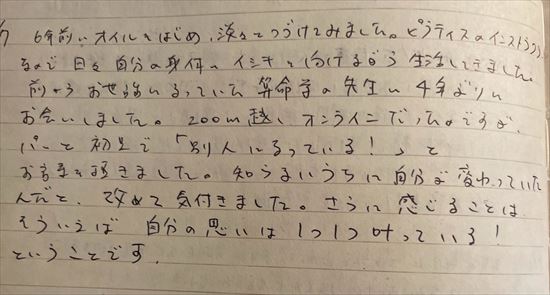 6年前にオイルをはじめ、淡々とつづけてみました。ピラティスのインストラクター
なので 日々 自分の身体に イシキを 向けながら 生活してきました。
前からお世話になっていた 算命学の先生に 4年ぶりに
お会いしました。 zoom越し オンラインで だったのですが、
パーと 初見で 「別人になっている！」 と
お言葉を頂きました。 知らないうちに 自分が 変わっていた
んだと、 改めて 気付きました。 さらに 感じることは
そういえば 自分の思いは 1つ1つ 叶っている！
ということです。